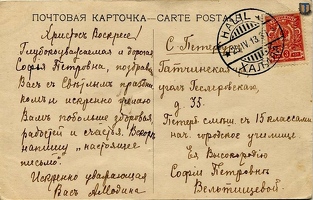 ПОЧТОВАЯ КАРТОЧКА — CARTE POSTALE
Христос Воскресе!
Глубокоуважаемая и дорогая
Софья Петровна, поздравляю
Васъ съ Свѣтлымъ праздни
комъ и искренно желаю
Вамъ побольше здоровья,
радостей и счастья. Вскорѣ
напишу „настоящее
письмо".
Искренно уважающая
Васъ
С. Петер
Гатчинская
улица
д. 35.
Петерб. съ 15 классами
нач. городское училище
Ея Высокородію
Софіи Петровнѣ
HAILAR
ХАЙЛАРЪ